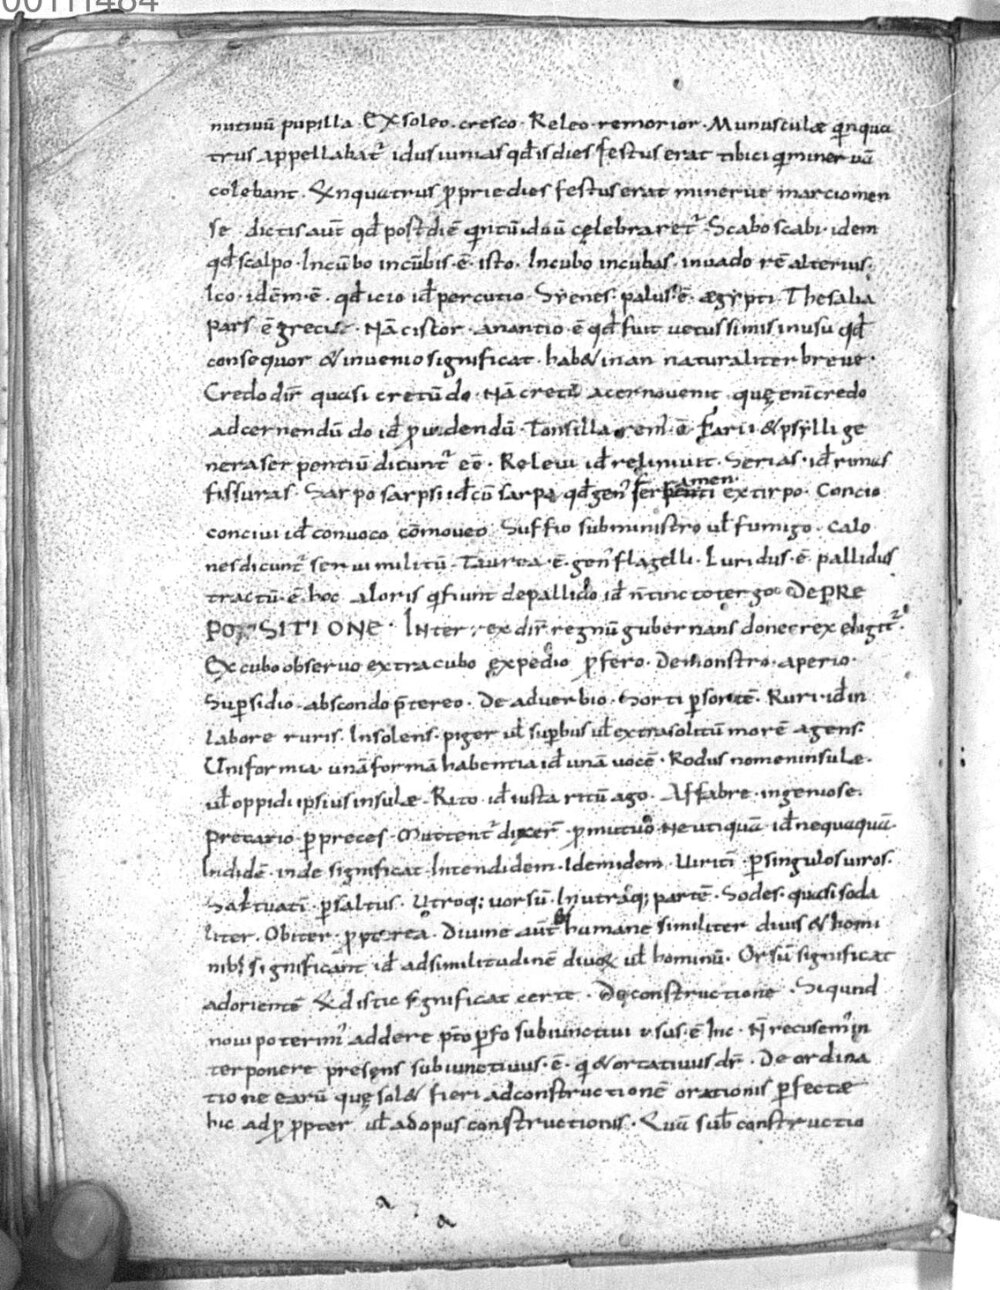 00111484
nutiuū pupilla. Ex soleo. cresco. Releo. remorior. Munusculæ qinqua
trus appellabat᷑ idus iunias qđ is dies festus erat tibici qi miner uā
colebant. Qinquatrus ꝓprie dies festus erat minerue marcio men
se dictis aut̄ qđ post diē qintū iduū cęlebraret᷑. Scabo scabi. idem
qđ scalpo. Incūbo incūbis. ē. isto. Incubo incubas. inuado rē alterius.
Ico. idem. ē. qđ icio iđ percutio. Syenes. palus. ē. ægypti. Thesalia
pars ē greciæ. Nāciscor. anantio. ē qđ fuit uetussimis in usu qđ
consequor & inuenio significat. hab& in an naturaliter breue.
Credo dir̄ quasi cretū do. Nā cretū a cerno uenit. quę enī credo
ad cernendū do iđ ꝓ uidendū. Tonsilla. ē. Farii & psylli ge
nera serpentiū dicunt᷑ eē. Releui iđ reliniuit. Serias. iđ rimas
fissuras. Sarpo sarpsi iđ cū sarpa qđ gen᾽ fer amenti extirpo. Concio
conciui iđ conuoco cōmoueo. Suffio subministro uł fumigo. Calo
nes dicunt᷑ serui militū. Taurea. ē. gen᾽ flagelli. Luridus. ē. pallidus
tractū. ē. hoc a loris q fiunt de pallido iđ n̄ tincto tergo. De PRE
POSITIONE. INter rex dir̄ regnū gubernans donec rex eligit᷑.
Excubo obseruo extra cubo expedio ꝓfero. Demonstro. aperio.
Suꝑsidio. abscondo p̄tereo. De aduerbio. Sorti ꝑ sortē. Ruri. iđ in
labore ruris. Insolens. piger uł suꝑbus uł extra solitū morē agens.
Uniformia. unā formā habentia iđ unā uocē. Rodus nomen insulæ.
uł oppidi ipsius insulæ. Rito. iđ iusta ritū ago. Affabre. ingeniose.
Precario. ꝑ preces. Mutteent᷑ dixer̄ ꝓ mutuo. Ne utiquā. iđ nequaquā.
Indidē. inde significat. Intendidem. Idemidem. Uiritī. ꝑ singulos uiros.
Saltuatī. ꝑ saltus. Utroq; uorsū. In utrāq; partē. Sodes. quasi soda
liter. Obiter. ꝓpterea. Diuine aut̄ humane similiter diuis & homi
nib; significant iđ ad similitudinē diuoꝝ uł hominū. Orsū significat
ad orientē & distic significat certe. De constructione. Siqund
noui poterim᾽ addere p̄to ꝑfo subiunctiui usus. ē Inc. N̄ recusem᾽ in
ter ponere presens subiunctiuus. ē. q & ortatiuus dr̄. De ordina
tione earū quę sol& fieri ad constructionē orationis ꝑfectæ
hic ad ꝓ ꝓpter uł ad opus constructionis. Quā sub constructio
a
a